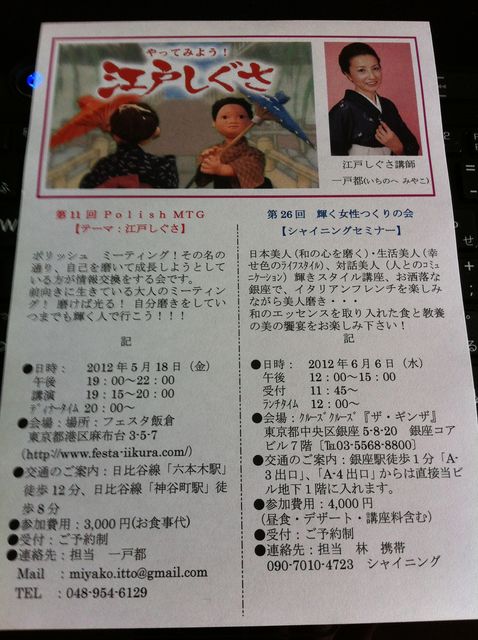 やってみよう！
江戸しぐさ
江戸しぐさ講師
一戸都(いちのへ みやこ)
第11回 Polish MTG
【テーマ：江戸しぐさ】
ポリッシュ ミーティング！その名の
通り、自己を磨いて成長しようとして
いる方が情報交換をする会です。
前向きに生きている大人のミーティン
グ！磨けば光る！ 自分磨きをしてい
つまでも輝く人で行こう！！！
記
●日時： 2012年5月18日（金）
午後 19：00～22：00
講演 19：15～20：00
ディナータイム 20：00～
●会場：場所：フェスタ飯倉
東京都港区麻布台3-5-7
(http://www.festa-iikura.com/)
●交通のご案内：日比谷線「六本木駅」
徒歩12分、日比谷線「神谷町駅」徒
歩8分
●参加費用：3,000円(お食事代)
●受付：ご予約制
●連絡先：担当 一戸都
Mail ：miyako.itto@gmail.com
TEL ：048-954-6129
第26回 輝く女性つくりの会
【シャイニングセミナー】
日本美人（和の心を磨く）・生活美人（幸
せ色のﾗｲﾌｽﾀｲﾙ)、対話美人（人とのコミュ
ニケーション）輝きスタイル講座、お洒落な
銀座で、イタリアンフレンチを楽しみ
ながら美人磨き・・・
和のエッセンスを取り入れた食と教養
の美の饗宴をお楽しみ下さい！
記
●日時： 2012年6月6日（水）
午後 12：00～15：00
受付 11：45～
ランチタイム 12：00～
●会場：ｸﾙｰｽﾞｸﾙｰｽﾞ『ザ・ギンザ』
東京都中央区銀座5-8-20 銀座コア
ビル7階〔℡03-5568-8800〕
●交通のご案内：銀座駅徒歩1分「A-
3出口」、「A-4出口」からは直接当ビ
ル地下1階に入れます。
●参加費用：4,000円
（昼食・デザート・講座料含む）
●受付：ご予約制
●連絡先：担当 林 携帯
090-7010-4723 シャイニング